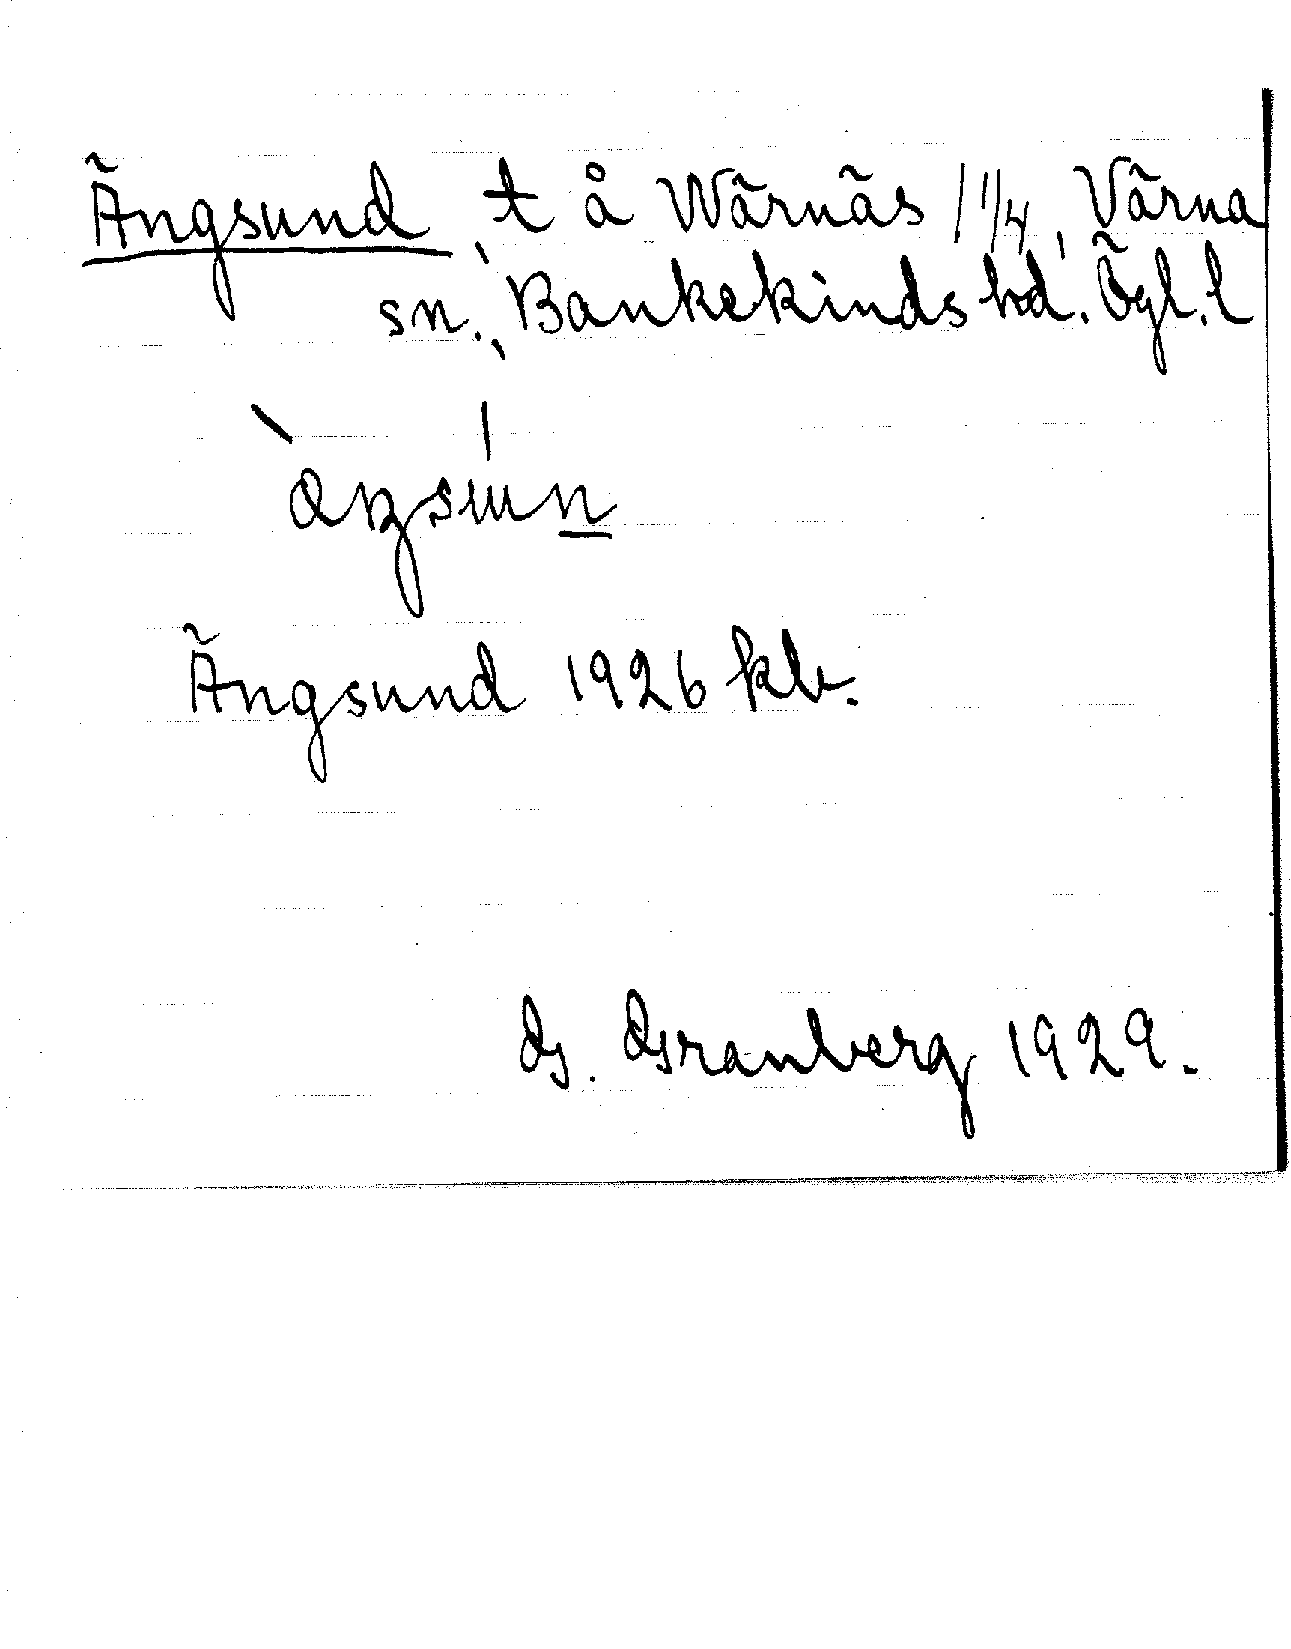 Ängsund, t å Wärnäs 1 1/4, Värna
sn., Bankekinds hd. Ögl. l
Ängsund 1926 kb.
G. Granberg 1929.